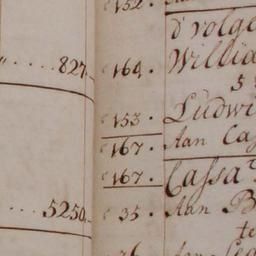 152.
d'volge
827,-
164. Willia
5
153. Ludwi
167. Aan Ca
167. Cassa
5250,-
35. Aan B
te
36. Aan